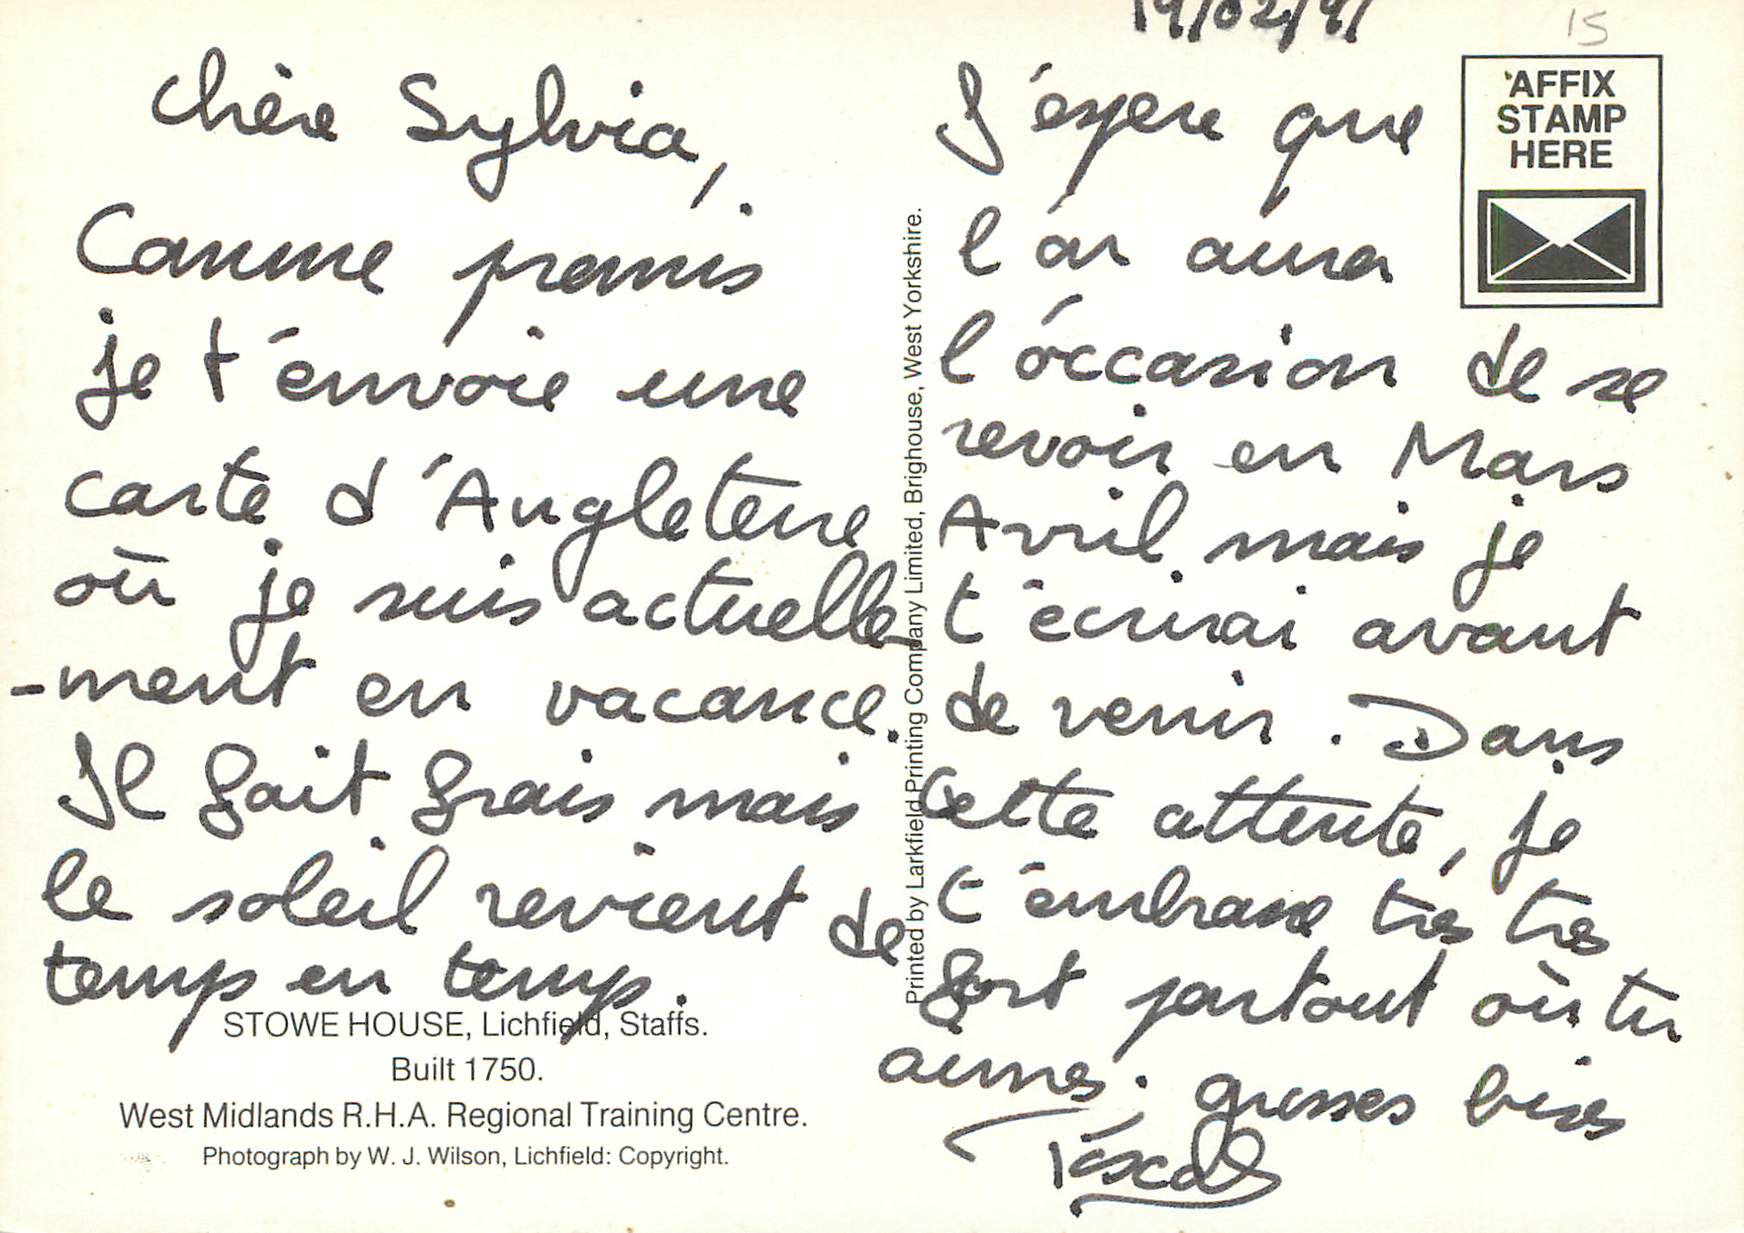 19/02/91
15
Chère Sylvia,
Comme promis
je t'envoie une
carte d'Angleterre
où je suis actuelle-
-ment en vacance.
Il fait frais mais
le soleil revient de
temps en temps.
STOWE HOUSE, Lichfield, Staffs.
Built 1750.
West Midlands R.H.A. Regional Training Centre.
Photograph by W. J. Wilson, Lichfield: Copyright.
Printed by Larkfield Printing Company Limited, Brighouse, West Yorkshire.
AFFIX
STAMP
HERE
J'espere que
l'on aura
l'occasion de se
revoir en Mars
Avril mais je
t'écrirai avant
de venir. Dans
cette attente, je
t'embrasse très très
fort partout où tu
aimes. grosses bises
Pascal